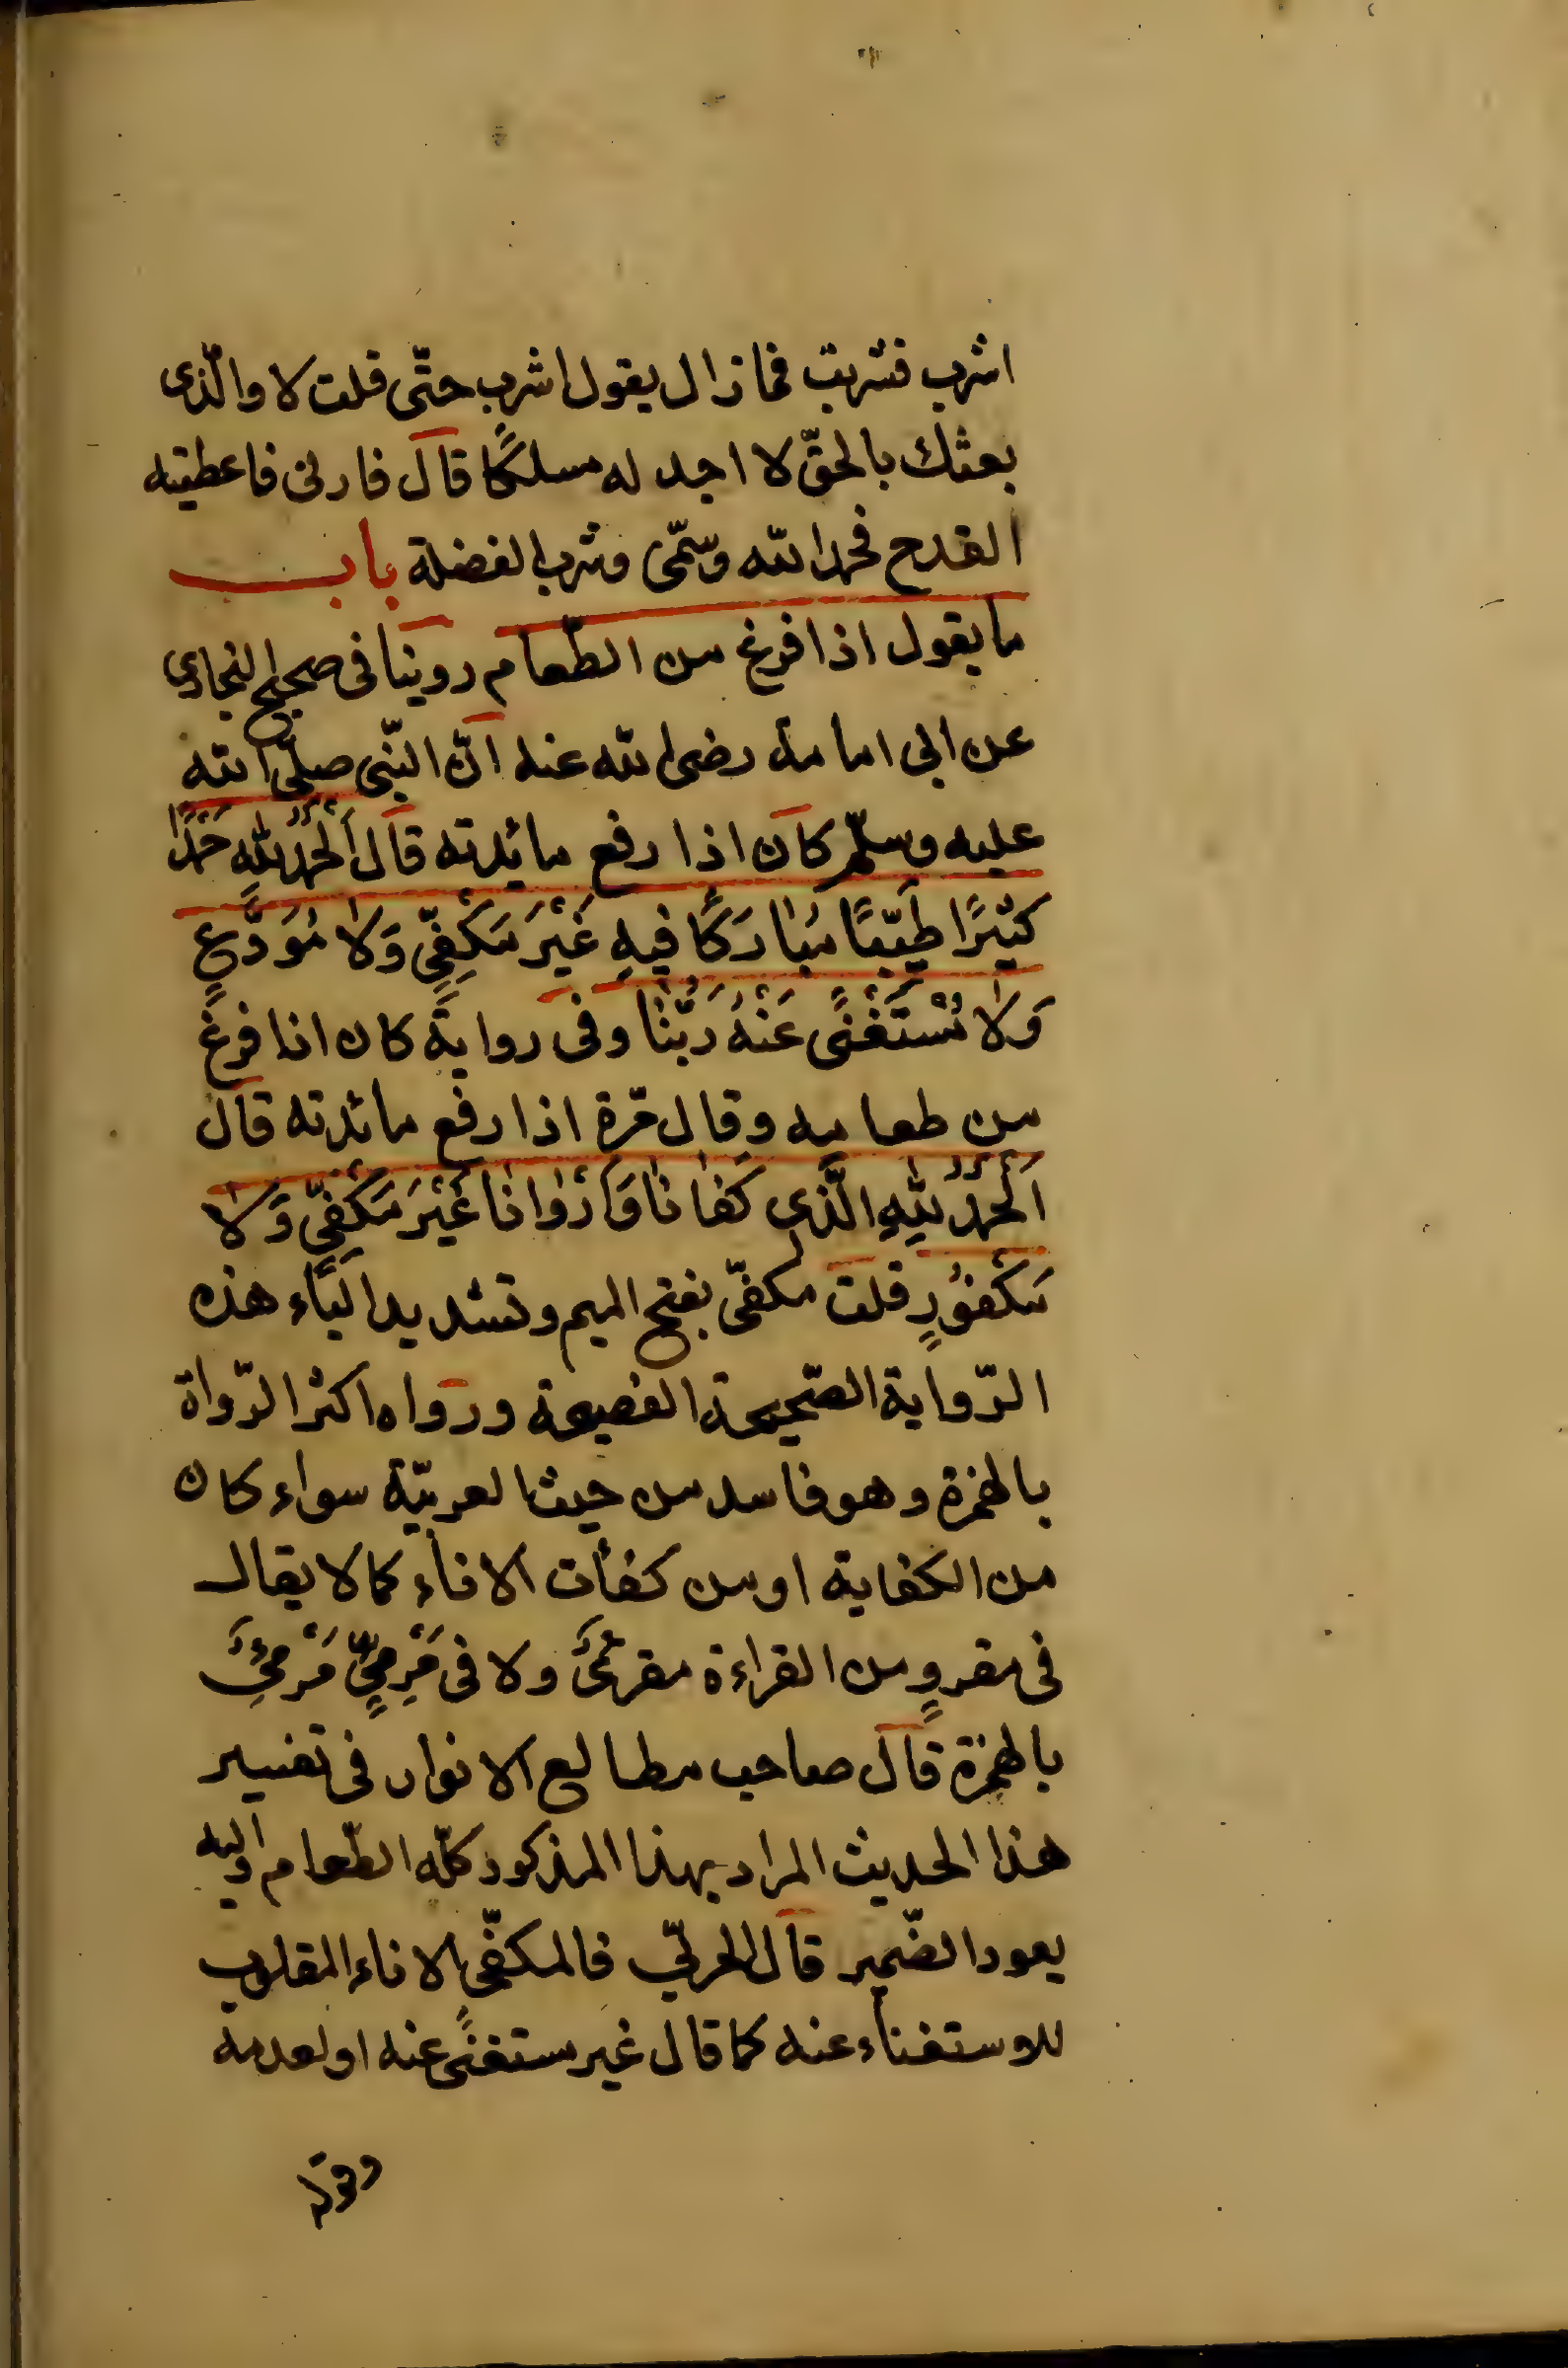 اشرب فشربت فما زال يقول اشرب حتّى قلت لا والّذى
بعثك بالحقّ لا اجد له مسلكًا قال فارنى فاعطيته
القدح فحمد الله وسمّى وشرب الفضلة باب
ما يقول اذا فرغ من الطّعام روينا فى صحيح البخارى
عن ابى امامة رضى الله عنه انّ النّبى صلّى الله
عليه وسلّم كان اذا رفع مائدته قال اَلْحَمْدُ لِلّٰهِ حَمْدًا
كَثِيرًا طَيِّبًا مُبَارَكًا فِيهِ غَيْرَ مَكْفِيٍّ وَلَا مُوَدَّعٍ
وَلَا مُسْتَغْنًى عَنْهُ رَبَّنَا وفى رواية كان اذا فرغ
من طعامه وقال مرّة اذا رفع مائدته قال
اَلْحَمْدُ لِلّٰهِ الَّذِى كَفَانَا وَاَرْوَانَا غَيْرَ مَكْفِيٍّ وَلَا
مَكْفُورٍ قلت مكفىّ بفتح الميم وتشديد الياء هذه
الرّواية الصّحيحة الفصيحة ورواه اكثر الرّواة
بالهمزة وهو فاسد من حيث العربيّة سواء كان
من الكفاية او من كفأت الاناء كما لا يقال
فى مقروٍ من القراءة مقرئى ولا فى مَرْمِيٍّ مَرْمِئ
بالهمزة قال صاحب مطالع الانوار فى تفسير
هذا الحديث المراد بهذا المذكور كلّه الطّعام واليه
يعود الضّمير قال الحربىّ فالمكفّى الاناء المقلوب
للاستغناء عنه كما قال غير مستغنًى عنه او لعدمه
وقوله